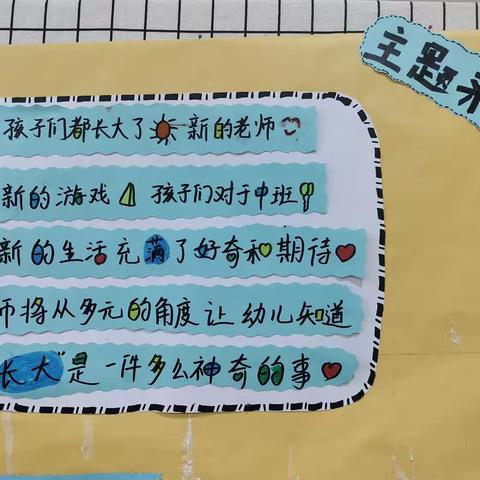 主题
孩子们都长大了 新的老师
新的游戏 孩子们对于中班
新的生活充满了好奇和期待
师将从多元的角度让幼儿知道
长大"是一件多么神奇的事